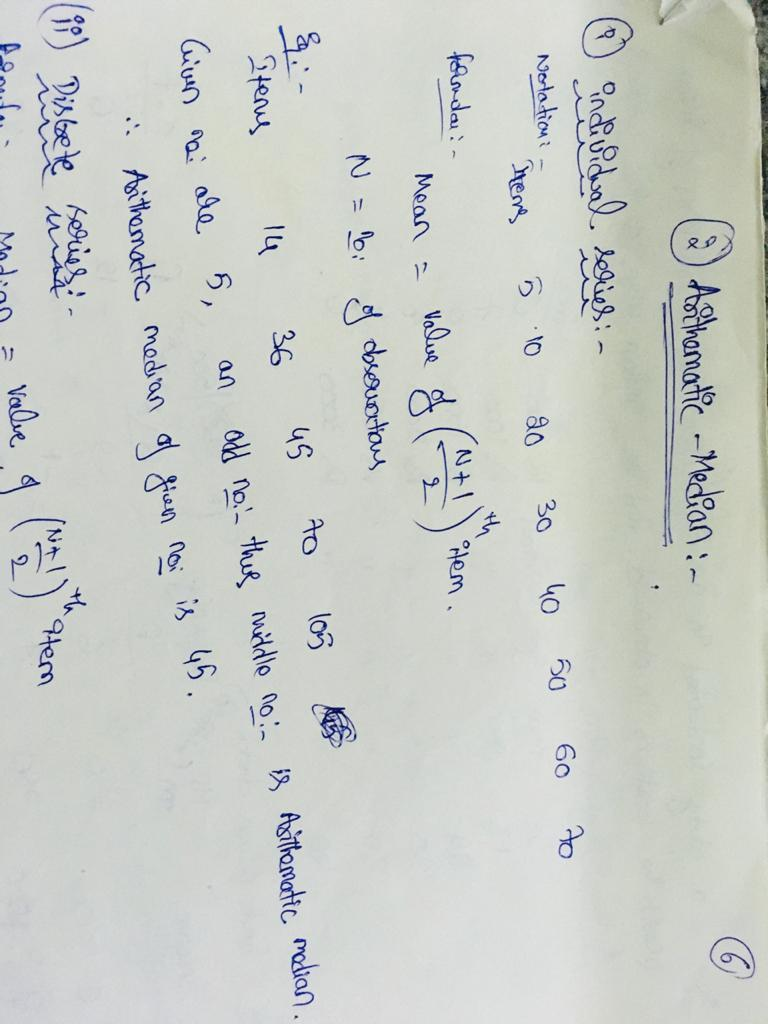 6
② Arithematic - Median :-
(i) individual series :-
Notation :- Items 5 10 20 30 40 50 60 70
formula :- Mean = value of (N+1/2)th item.
N = no: of observations
Eg :-
Items 14 36 45 70 105
Given no: are 5, an odd no:- thus middle no:- is Arithematic median.
∴ Arithematic median of given no: is 45.
(ii) Discrete series :-
formula :- Median = value of (N+1/2)th item